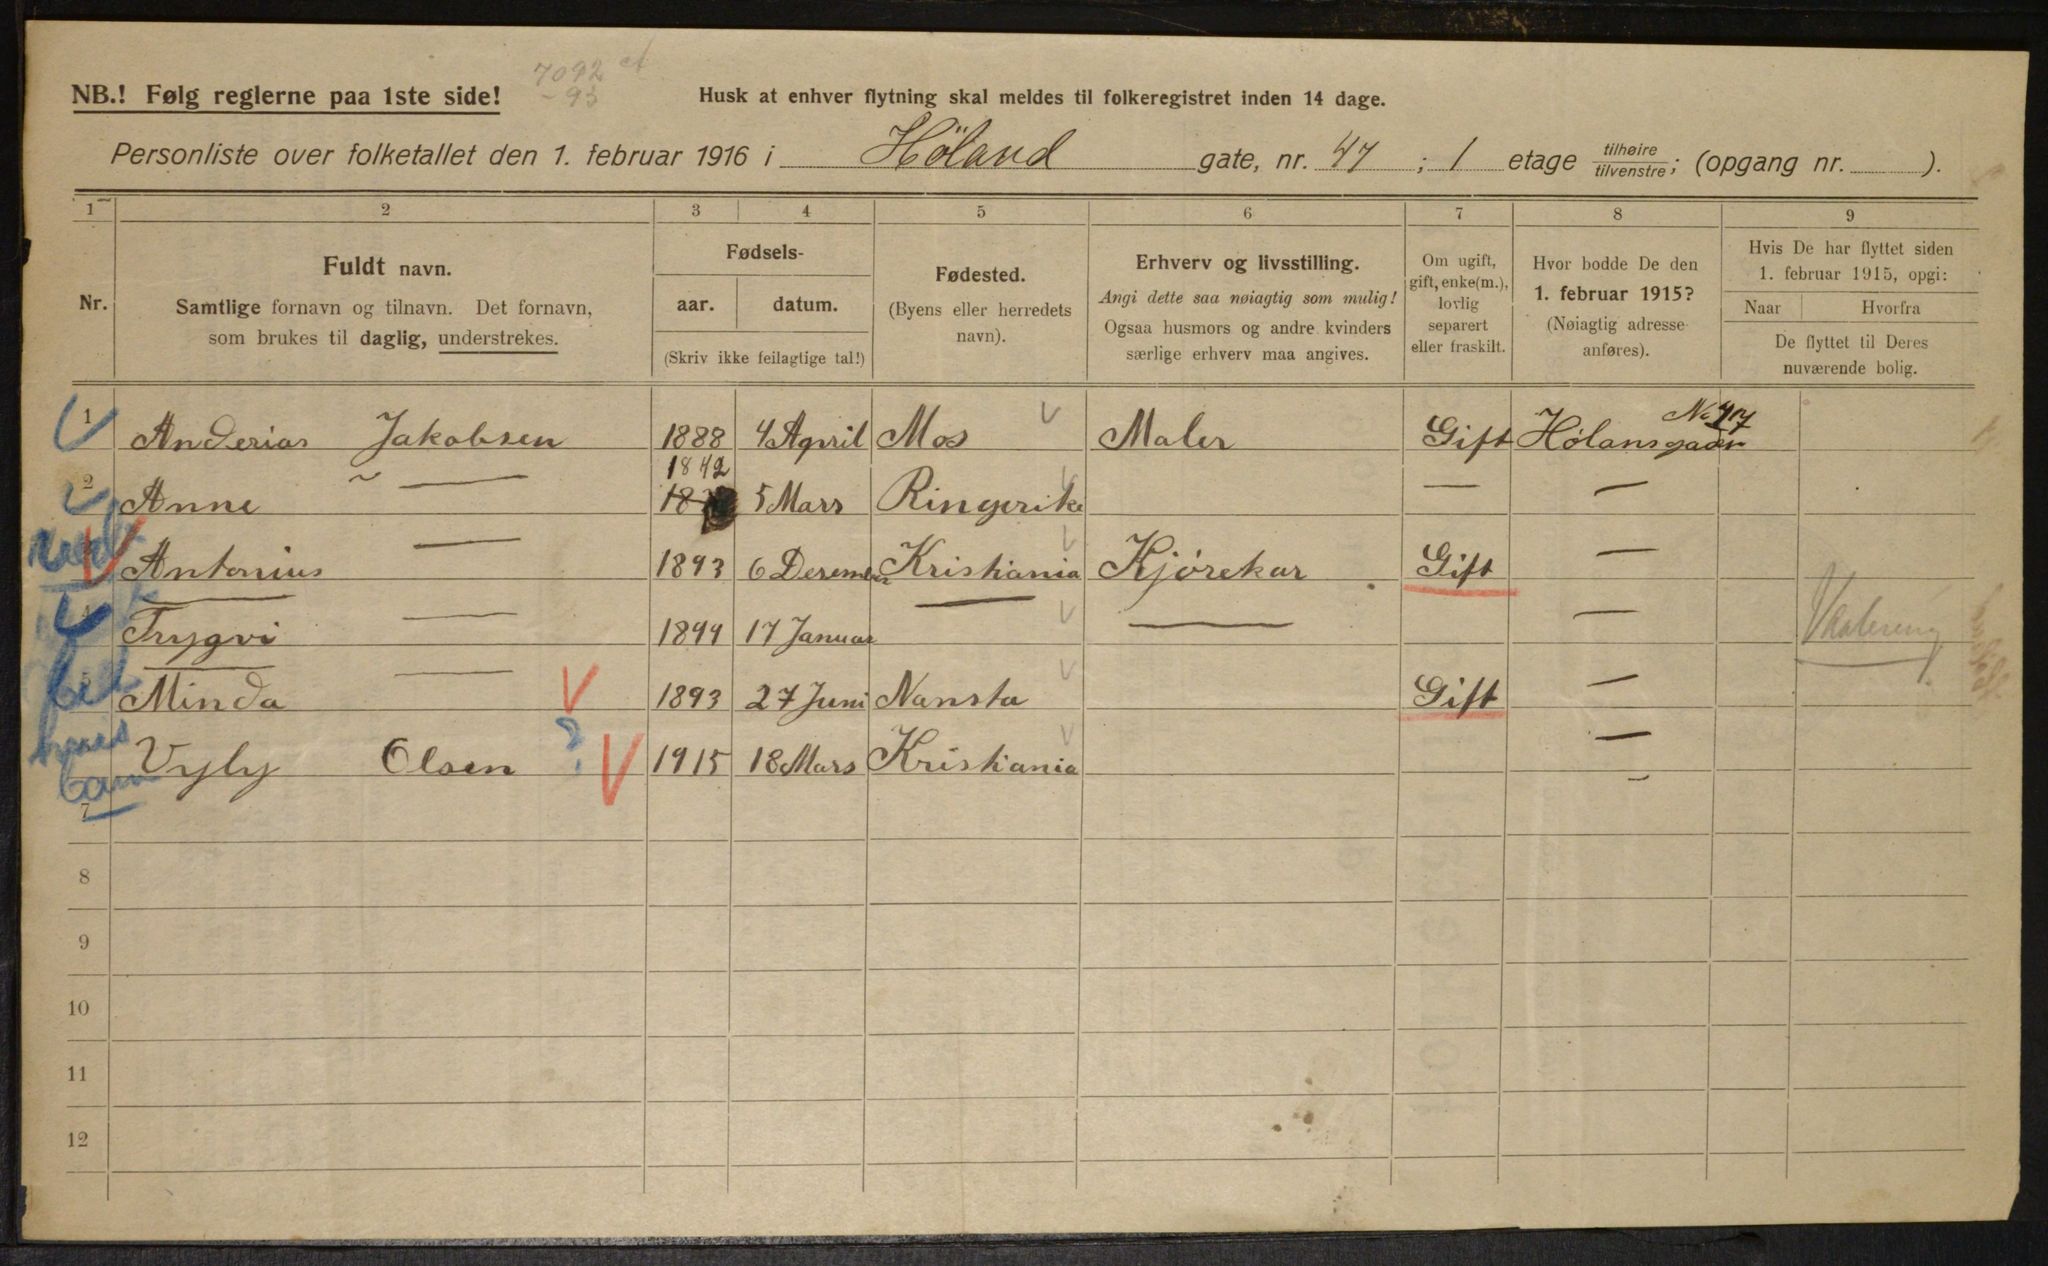 7092 A
-93
NB.! Følg reglerne paa 1ste side!
Husk at enhver flytning skal meldes til folkeregistret inden 14 dage.
Personliste over folketallet den 1. februar 1916 i Höland gate, nr. 47 ; 1 etage tilhøire/tilvenstre; (opgang nr. ).
1 2 3 4 5 6 7 8 9
Nr.
Fuldt navn.
Samtlige fornavn og tilnavn. Det fornavn,
som brukes til daglig, understrekes.
Fødsels-
aar. datum.
(Skriv ikke feilagtige tal!)
Fødested.
(Byens eller herredets
navn).
Erhverv og livsstilling.
Angi dette saa nøiagtig som mulig!
Ogsaa husmors og andre kvinders
særlige erhverv maa angives.
Om ugift,
gift, enke(m.),
lovlig
separert
eller fraskilt.
Hvor bodde De den
1. februar 1915?
(Nøiagtig adresse
anføres).
Hvis De har flyttet siden
1. februar 1915, opgi:
Naar Hvorfra
De flyttet til Deres
nuværende bolig.
1 Anderias Jakobsen 1888 4 April Mos Maler Gift Hølansgaden No 47
2 Anne — 1842 5 Mars Ringerike — —
Antonius — 1893 6 Desember Kristiania Kjørekar Gift —
4 Trygvi — 1899 17 Januar — — —
5 Minda — 1893 27 Juni Nansta Gift —
Vyly Olsen 1915 18 Mars Kristiania —
barn
7
8
9
10
11
12